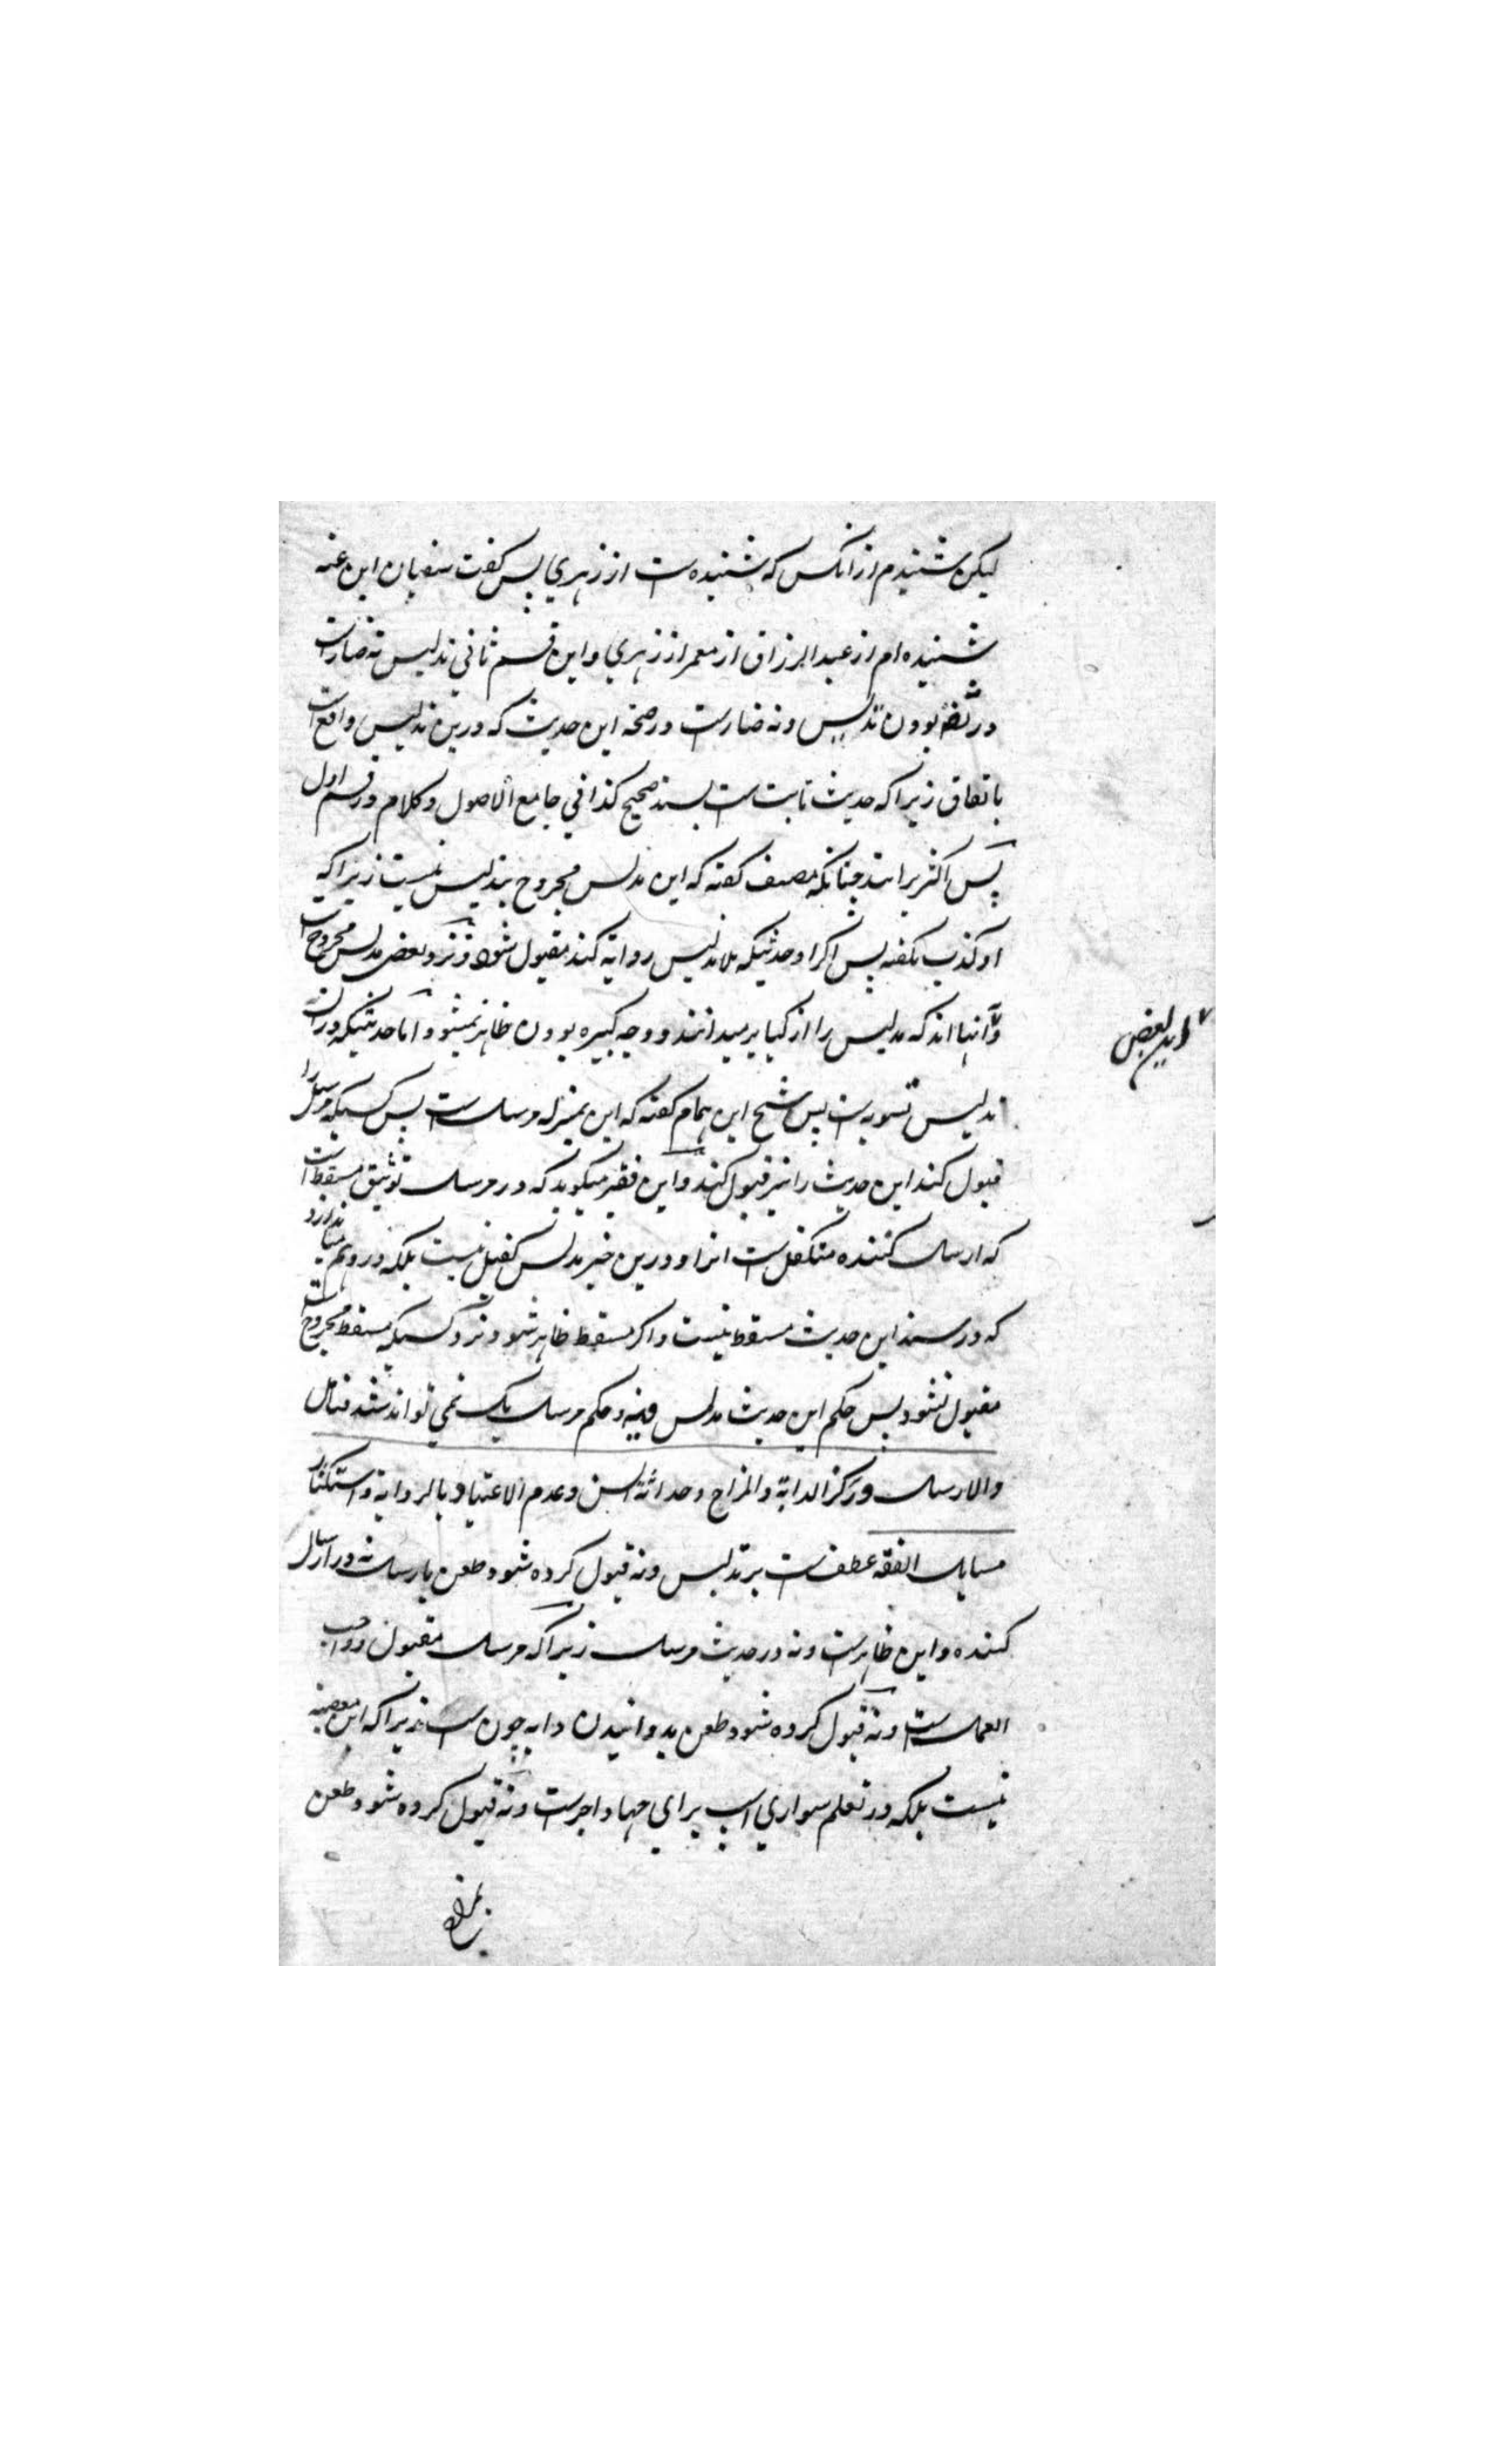 لیکن شنیدم از انکس که شنیده است از زهری پس گفت سفیان ابن عینه
شنیده ام از عبد الرزاق از معمر از زهری و این قسم ثانی تدلیس نه ضار است
در ثقه بودن تدلیس و نه ضار است در صحة این حدیث که درین تدلیس واقع است
باتفاق زیراکه حدیث ثابت است بسند صحیح کذا فی جامع الاصول و کلام در قسم اول
پس اکثر برانند چنانکه مصنف گفته که این مدلس مجروح بتدلیس نیست زیراکه
او کذب نگفته پس اگر او حدیثیکه بلا تدلیس روایة کند مقبول شود و نزد بعض مدلس مجروح است
و آنها اند که تدلیس را از کبایر میدانند و وجه کبیره بودن ظاهر نمیشود اما حدیثیکه دران
این بعض
تدلیس تسویه است پس شیخ ابن همام گفته که این بمنزله مرسل است پس کسیکه مرسل را
قبول کند این حدیث را نیز قبول کند و این فقیر میگوید که در مرسل توثیق مسقط است
که ارسال کننده متکفل است انرا و درین خبر مدلس کفیل نیست بلکه در وهم می اندازد
که در سند این حدیث مسقط نیست و اگر مسقط ظاهر شود نزد کسیکه مسقط مجروح است
مقبول نشود پس حکم این حدیث مدلس فیه و حکم مرسل یک نمی تواند شد فتامل
والارسال ورکز الدابة والمزاح وحداثة السن وعدم الاعتیاد بالروایة واستکثار
مسایل الفقه عطف است بر تدلیس و نه قبول کرده شود طعن بارسال نه در ارسال
کننده و این ظاهر است و نه در حدیث مرسل زیراکه مرسل مقبول و واجب
العمل است و نه قبول کرده شود طعن بدوانیدن دابه چون اسپ زیراکه این معصیة
نیست بلکه در تعلم سواری اسپ برای جهاد اجر است و نه قبول کرده شود طعن
بمزاح